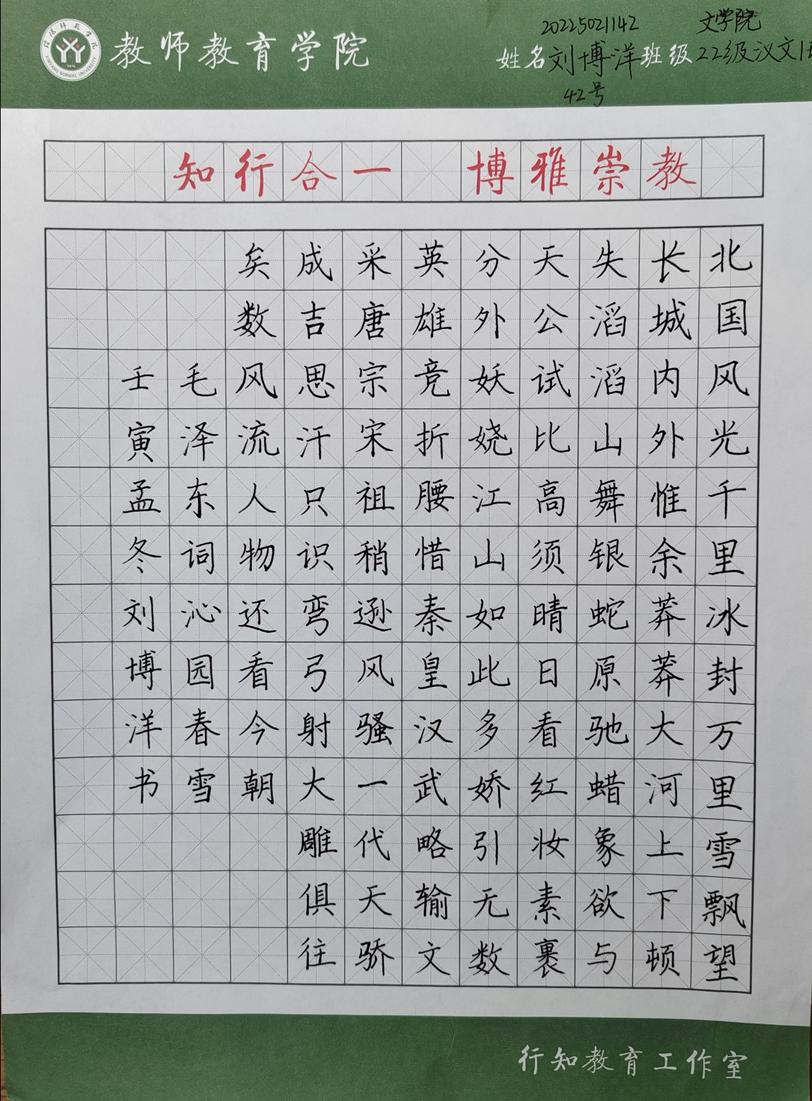 教师教育学院
20225021142 文学院
姓名刘博洋班级22级汉文1
42号
知行合一 博雅崇教
北国风光千里冰封万里雪飘望
长城内外惟余莽莽大河上下顿
失滔滔山舞银蛇原驰蜡象欲与
天公试比高须晴日看红妆素裹
分外妖娆江山如此多娇引无数
英雄竞折腰惜秦皇汉武略输文
采唐宗宋祖稍逊风骚一代天骄
成吉思汗只识弯弓射大雕俱往
矣数风流人物还看今朝
毛泽东词沁园春雪
壬寅孟冬刘博洋书
行知教育工作室